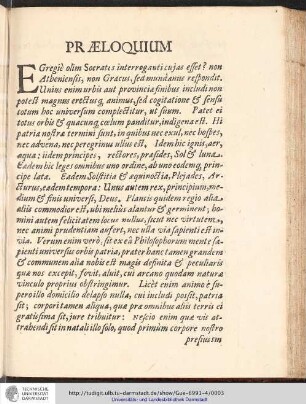 PRÆLOQUIUM
EGregiè olim Socrates interroganti cujas esset? non
Atheniensis, non Græcus, sed mundanus respondit.
Unius enim urbis aut provinciæ finibus includi non
potest magnus erectusq; animus, sed cogitatione & sensu
totum hoc universum complectitur, ut suum. Patet ei
totus orbis & quacunq; cœlum panditur, indigena est. Hi
patriæ nostræ termini sunt, in quibus nec exul, nec hospes,
nec advena, nec peregrinus ullus est. Idem hic ignis, aer,
aqua: iidem principes, rectores, præsides, Sol & luna.
Eadem hic leges omnibus uno ordine, ab uno eodemq; princi-
pe latæ. Eadem Solstitia & æquinoctia, Plejades, Ar-
cturus, eadem tempora: Unus autem rex, principium, me-
dium & finis universi, Deus. Plantis quidem regio alia
aliis commodior est, ubi melius alantur & germinent; ho-
mini autem felicitatem locus nullus, sicut nec virtutem,
nec animi prudentiam aufert, nec ulla via sapienti est in-
via. Verum enim verò, sit ex eâ Philosophorum mente sa-
pienti universus orbis patria, præter hanc tamen grandem
& communem alia nobis est magis definita & peculiaris
quæ nos excepit, fovit, aluit, cui arcano quodam naturæ
vinculo proprius obstringimur. Licet enim animo è su-
peroilio domicilio delapso nulla, cui includi possit, patria
sit; corpori tamen aliqua, quæ præ omnibus aliis terris ei
gratissima sit, jure tribuitur: Nescio enim quæ vis at-
trahendi sit in natali illo solo, quod primùm corpore nostro
pressimus
TECHNISCHE
UNIVERSITÄT
DARMSTADT
http://tudigit.ulb.tu-darmstadt.de/show/Gue-6991-4/0003
Universitäts- und Landesbibliothek Darmstadt